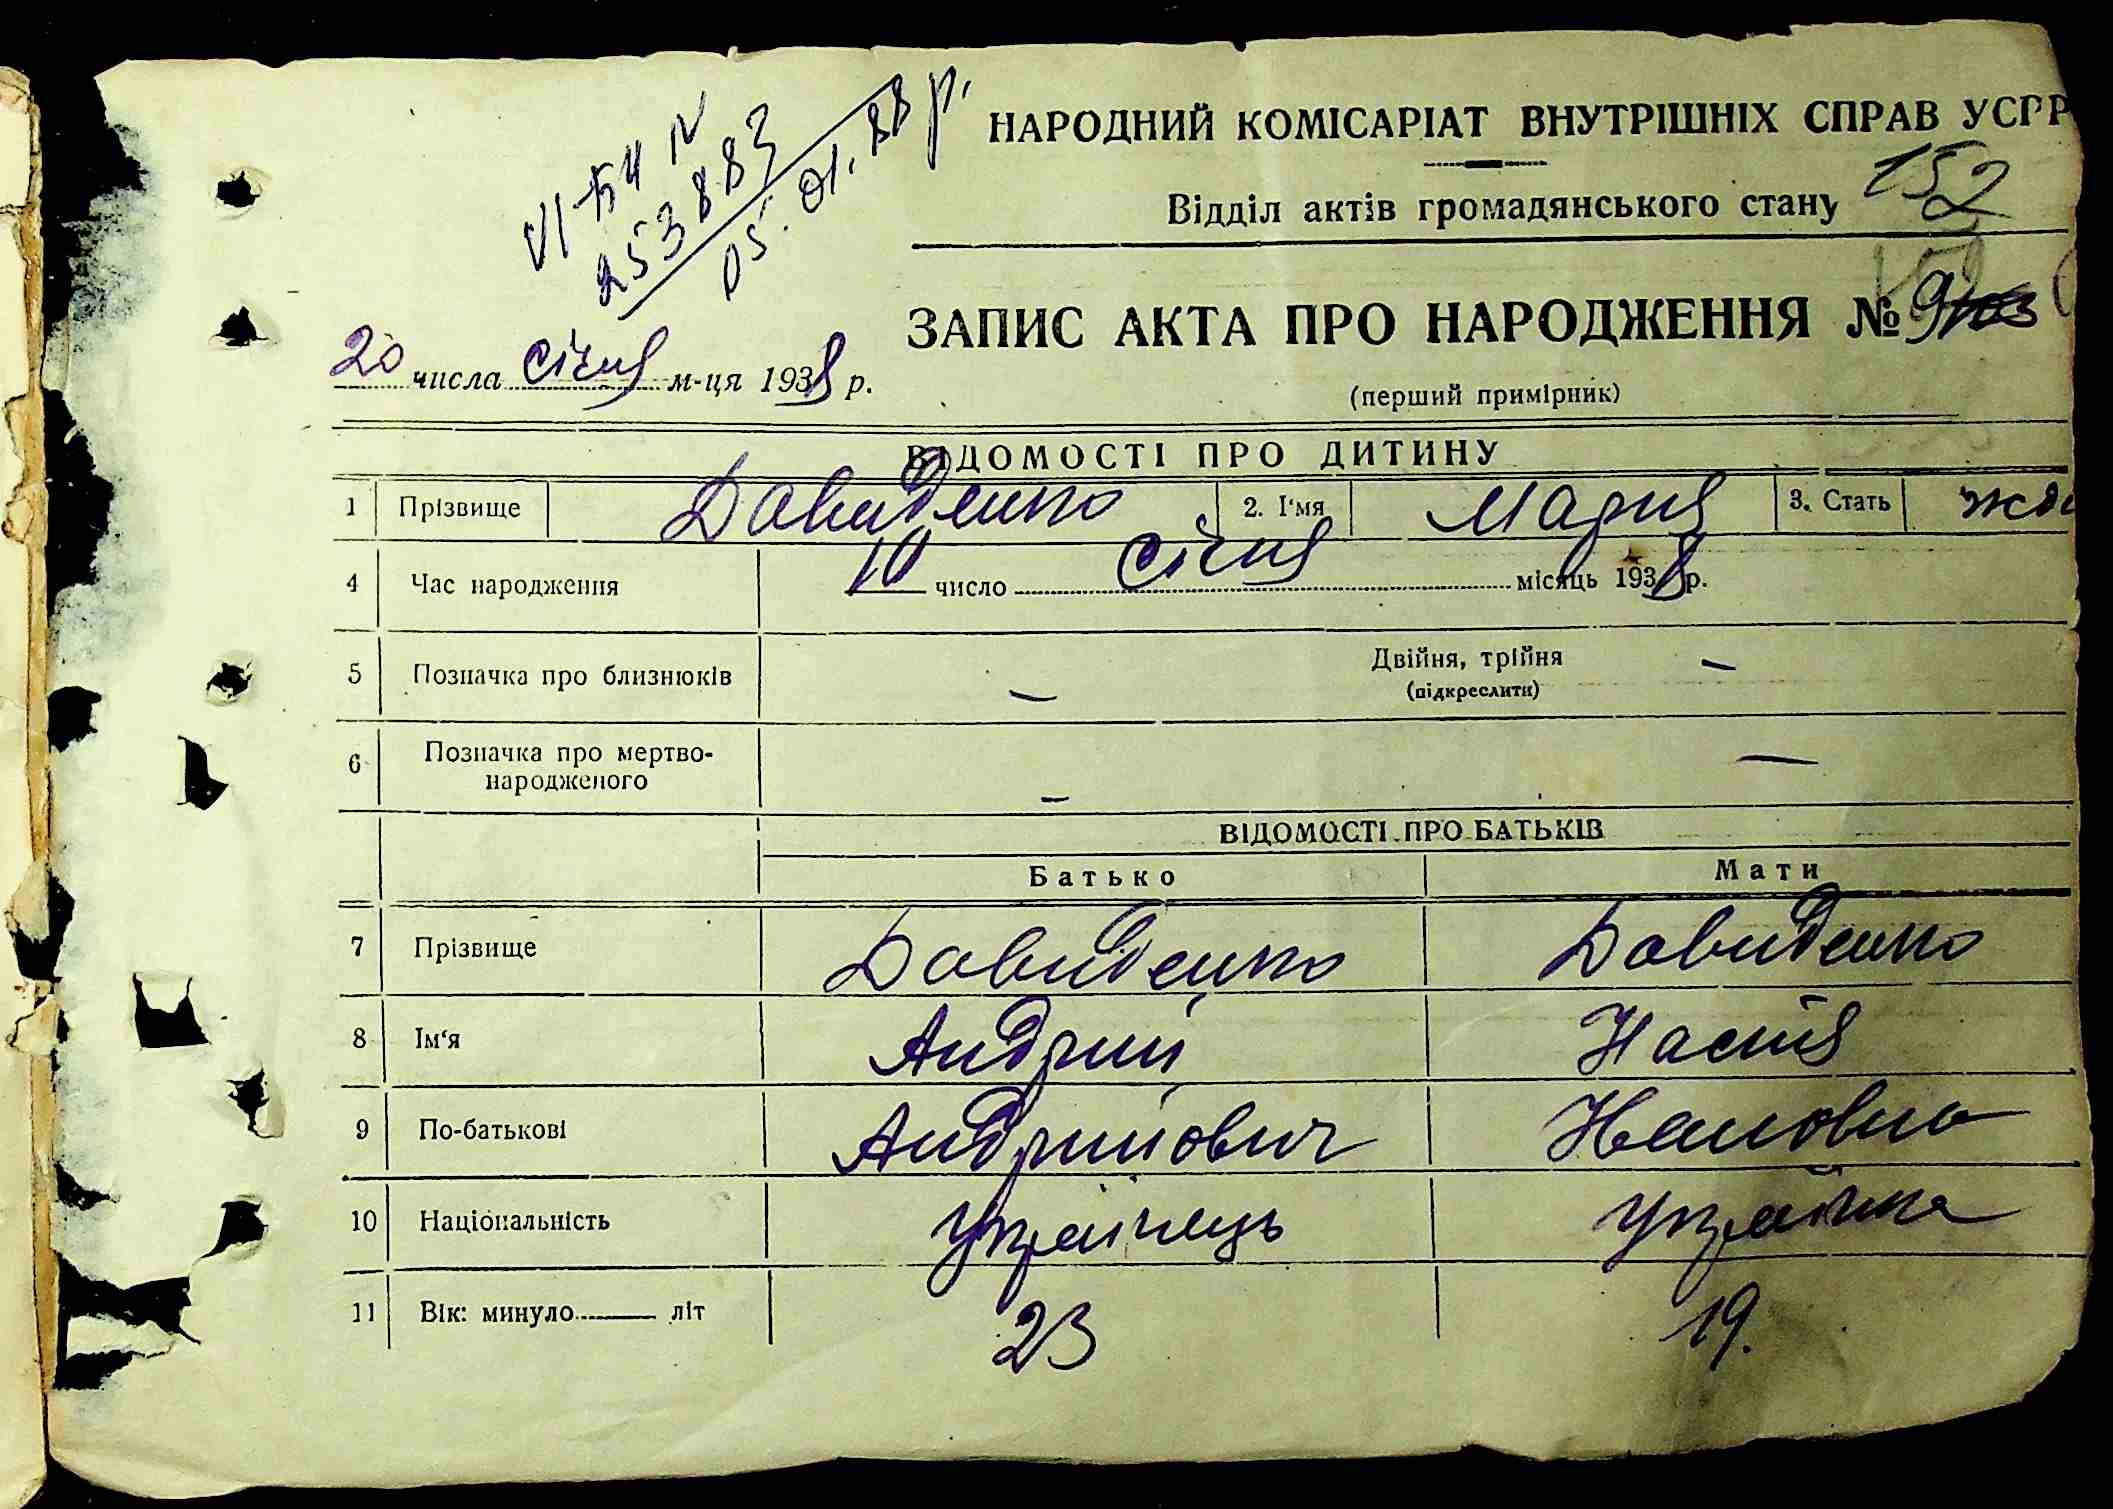 VI-БЧ N
253883
05.01.88 р.
НАРОДНИЙ КОМІСАРІАТ ВНУТРІШНІХ СПРАВ УСРР
Відділ актів громадянського стану
152
ЗАПИС АКТА ПРО НАРОДЖЕННЯ № 9
20 числа січня м-ця 1938 р.
(перший примірник)
ВІДОМОСТІ ПРО ДИТИНУ
1 Прізвище Давиденко 2. І'мя Мария 3. Стать
4 Час народження 10 число січня місяць 1938 р.
5 Позначка про близнюків — Двійня, трійня —
(підкреслити)
6 Позначка про мертво-
народженого — —
ВІДОМОСТІ ПРО БАТЬКІВ
Батько Мати
7 Прізвище Давиденко Давиденко
8 Ім'я Андрий Настя
9 По-батькові Андрийович Ивановна
10 Національність Українець Українка
11 Вік: минуло літ 23 19.